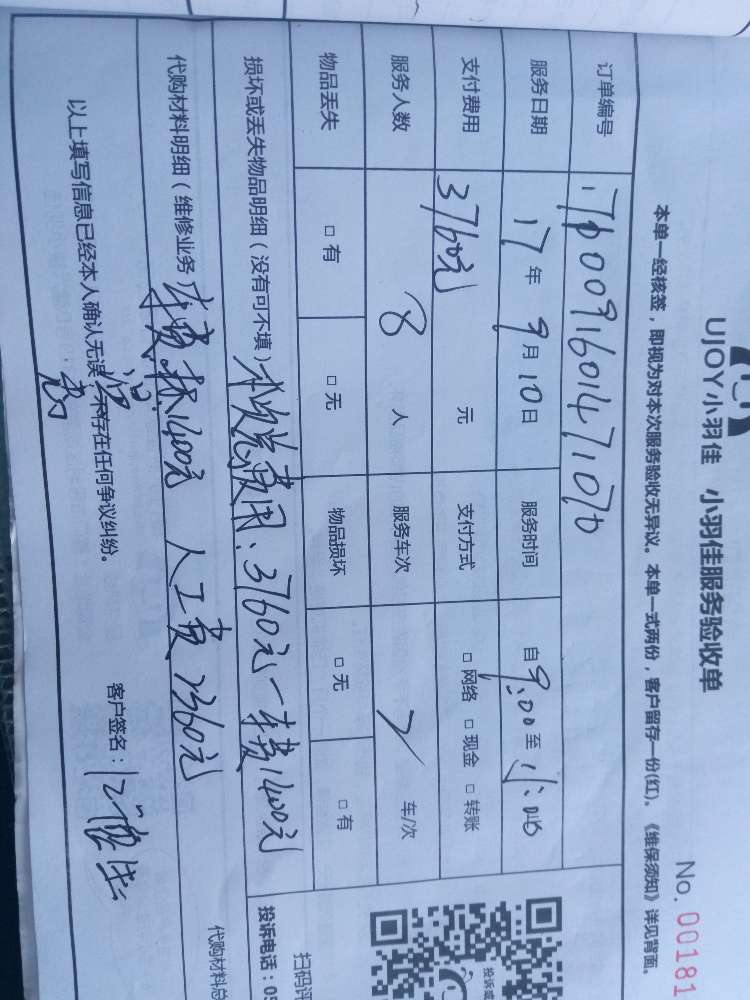 UJOY小羽佳 小羽佳服务验收单
No. 00181
本单一经核签，即视为对本次服务验收无异议。本单一式两份，客户留存一份(红)。《维保须知》详见背面。
订单编号
服务日期 17年 9月 10日 服务时间 自9:00至
支付费用 3760元 元 支付方式 □ 网络 □ 现金 □ 转账
服务人数 8 人 服务车次 车/次
物品丢失 □ 有 □ 无 物品损坏 □ 无 □ 有
损坏或丢失物品明细（没有可不填） 费用：3760元 1400元
代购材料明细（维修业务） 车费 1400元 人工费 2360元
代购材料总
以上填写信息已经本人确认无误，未存在任何争议纠纷。
客户签名：
扫码评
投诉电话：05
投诉或